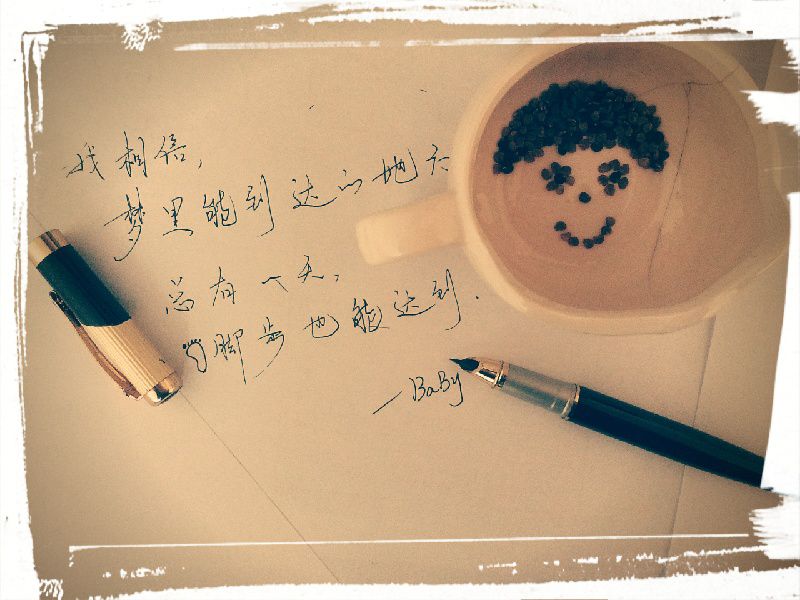 我相信，
梦里能到达的地方
总有一天，
脚步也能达到.
—BaBy